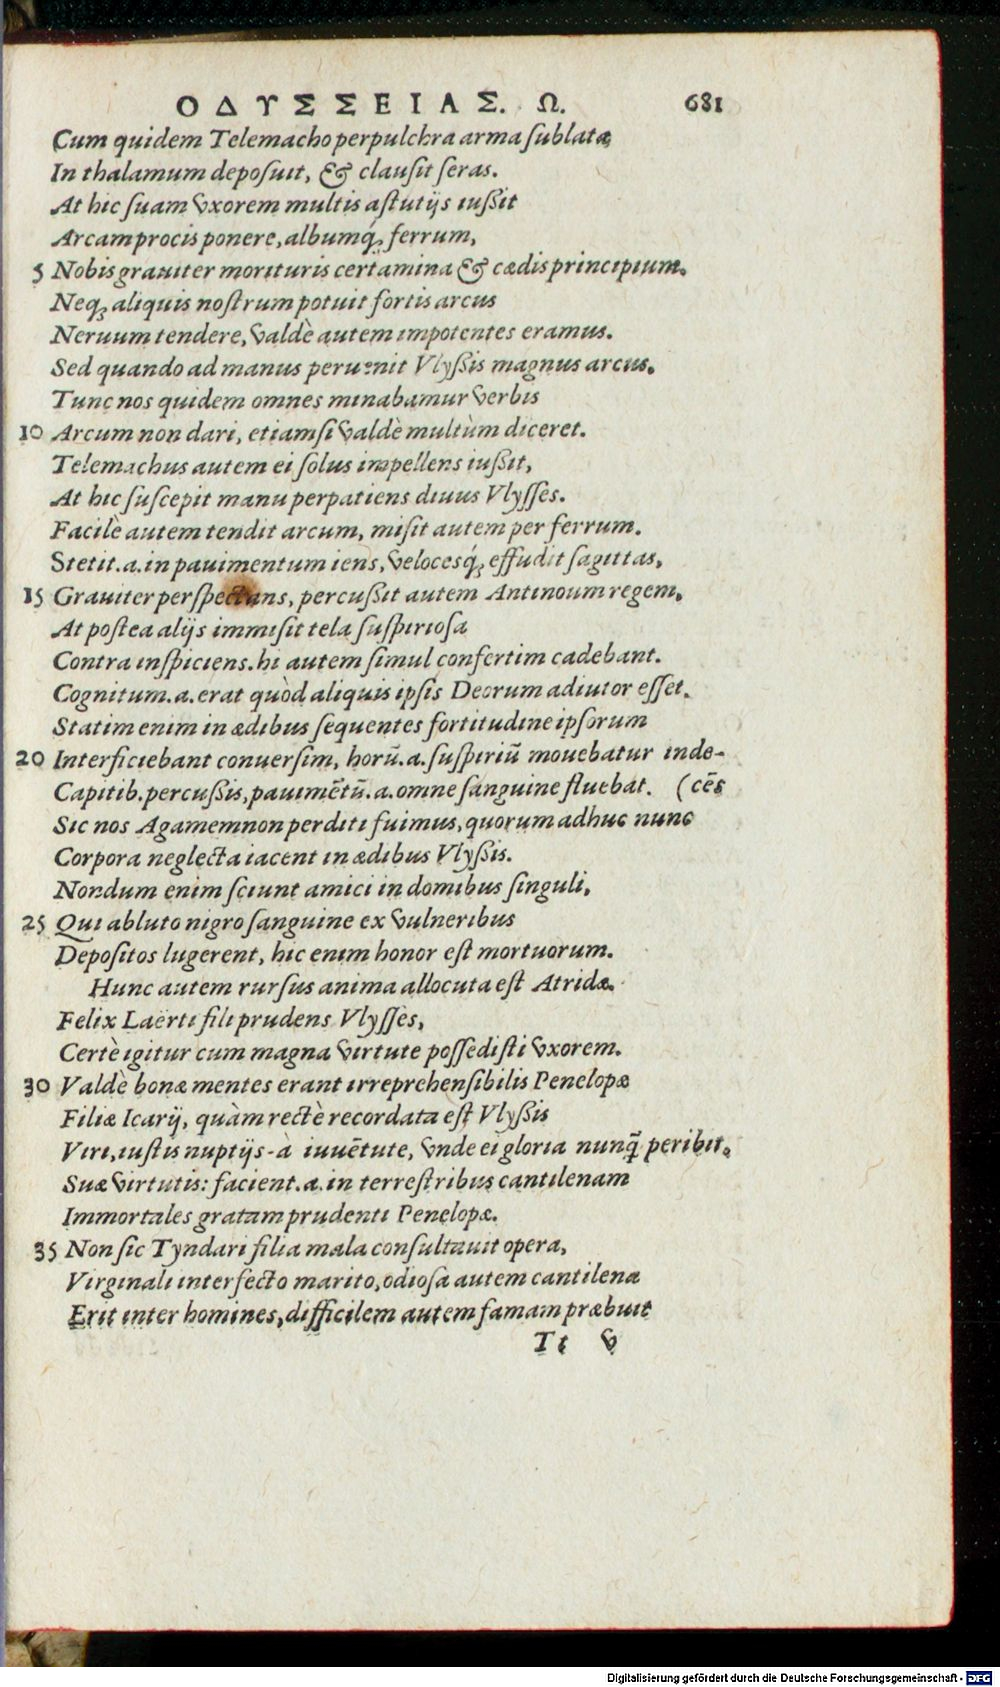 ΟΔΥΣΣΕΙΑΣ. Ω. 681
Cum quidem Telemacho perpulchra arma sublata,
In thalamum deposuit, & clausit seras.
At hic suam vxorem multis astutijs iussit
Arcam procis ponere, albumq́; ferrum,
5 Nobis grauiter morituris certamina & cædis principium.
Neq; aliquis nostrum potuit fortis arcus
Neruum tendere, valdè autem impotentes eramus.
Sed quando ad manus peruenit Vlyssis magnus arcus.
Tunc nos quidem omnes minabamur verbis
10 Arcum non dari, etiamsi valdè multùm diceret.
Telemachus autem ei solus impellens iussit,
At hic suscepit manu perpatiens diuus Vlysses.
Facilè autem tendit arcum, misit autem per ferrum.
Stetit.a.in pauimentum iens, velocesq́; effudit sagittas,
15 Grauiter perspectans, percussit autem Antinoum regem.
At postea alijs immisit tela suspiriosa
Contra inspiciens. hi autem simul confertim cadebant.
Cognitum.a.erat quòd aliquis ipsis Deorum adiutor esset.
Statim enim in ædibus sequentes fortitudine ipsorum
20 Interficiebant conuersim, horū.a.suspiriū mouebatur inde-
Capitib. percussis, pauimētū.a.omne sanguine fluebat. (cēs
Sic nos Agamemnon perditi fuimus, quorum adhuc nunc
Corpora neglecta iacent in ædibus Vlyssis.
Nondum enim sciunt amici in domibus singuli,
25 Qui abluto nigro sanguine ex vulneribus
Depositos lugerent, hic enim honor est mortuorum.
Hunc autem rursus anima allocuta est Atridæ.
Felix Laërti fili prudens Vlysses,
Certè igitur cum magna virtute possedisti vxorem.
30 Valdè bonæ mentes erant irreprehensibilis Penelopæ
Filiæ Icarij, quàm rectè recordata est Vlyssis
Viri, iustis nuptijs-à iuuētute, vnde ei gloria nunq̄ peribit.
Suæ virtutis: facient.a.in terrestribus cantilenam
Immortales gratam prudenti Penelopæ.
35 Non sic Tyndari filia mala consultauit opera,
Virginali interfecto marito, odiosa autem cantilena
Erit inter homines, difficilem autem famam præbuit
Tt v
Digitalisierung gefördert durch die Deutsche Forschungsgemeinschaft - DFG